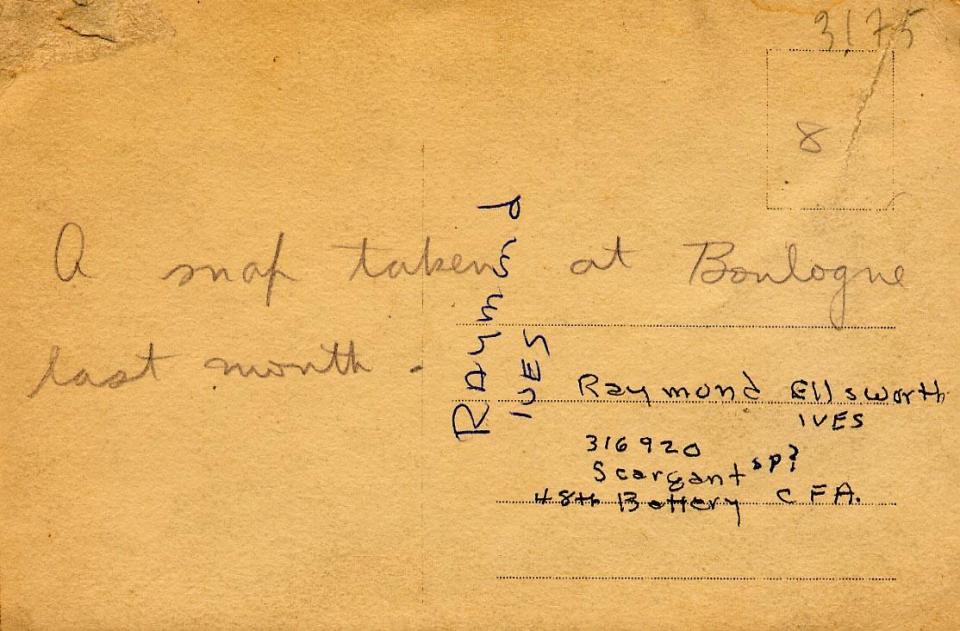 3175
8
A snap taken at Boulogne
last month.
Raymond
IVES
Raymond Ellsworth
IVES
316920
Scargant sp?
48th Battery CFA.